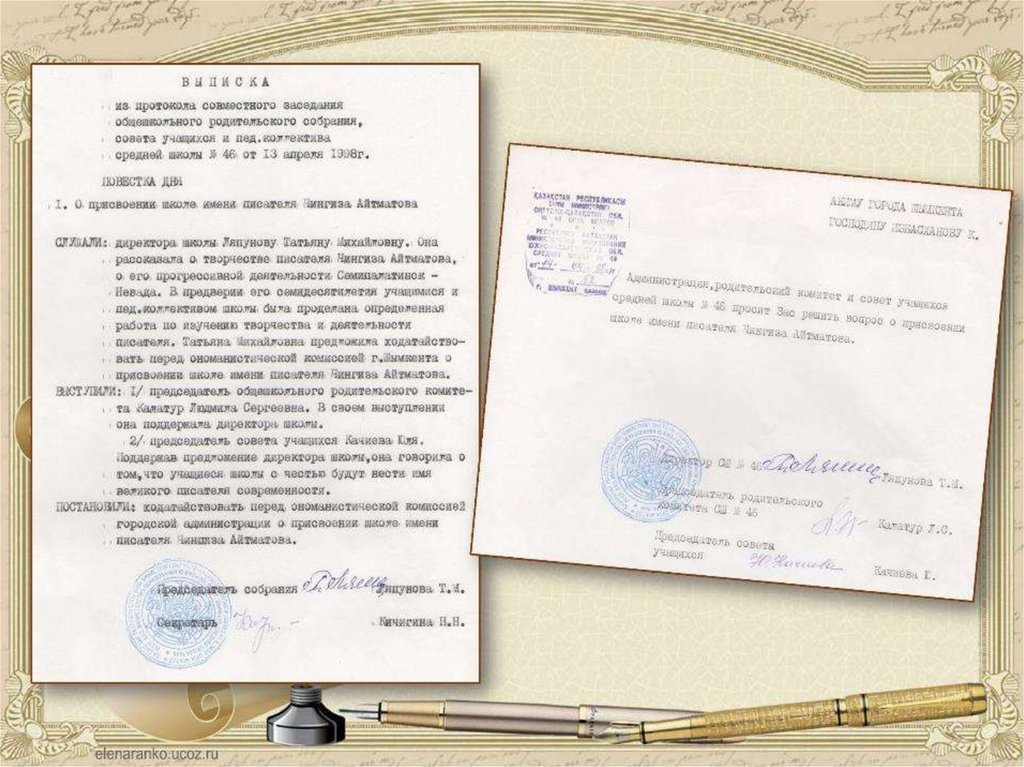 ВЫПИСКА
из протокола совместного заседания
общешкольного родительского собрания,
совета учащихся и пед.коллектива
средней школы № 46 от 13 апреля 1998г.
ПОВЕСТКА ДНЯ
I. О присвоении школе имени писателя Чингиза Айтматова
СЛУШАЛИ: директора школы Ляпунову Татьяну Михайловну. Она
рассказала о творчестве писателя Чингиза Айтматова,
о его прогрессивной деятельности Семипалатинск -
Невада. В предверии его семидесятилетия учащимися и
пед.коллективом школы была проделана определенная
работа по изучению творчества и деятельности
писателя. Татьяна Михайловна предложила ходатайство-
вать перед ономанистической комиссией г.Шымкента о
присвоении школе имени писателя Чингиза Айтматова.
ВЫСТУПИЛИ: I/ председатель общешкольного родительского комите-
та Калатур Людмила Сергеевна. В своем выступлении
она поддержала директора школы.
2/ председатель совета учащихся Качиева Юля.
Поддержав предложение директора школы,она говорила о
том,что учащиеся школы с честью будут нести имя
великого писателя современности.
ПОСТАНОВИЛИ: ходатайствовать перед ономанистической комиссией
городской администрации о присвоении школе имени
писателя Чингиза Айтматова.
Председатель собрания Ляпунова Т.М.
Секретарь Кичигина Н.Н.
АКИМУ ГОРОДА ШЫМКЕНТА
ГОСПОДИНУ ИЗБАСХАНОВУ К.
ҚАЗАҚСТАН РЕСПУБЛИКАСЫ
Администрация,родительский комитет и совет учащихся
средней школы № 46 просит Вас решить вопрос о присвоении
школе имени писателя Чингиза Айтматова.
Директор СШ № 46 Ляпунова Т.М.
Председатель родительского
комитета СШ № 46 Калатур Л.С.
Председатель совета
учащихся Качиева Ю.
elenaranko.ucoz.ru